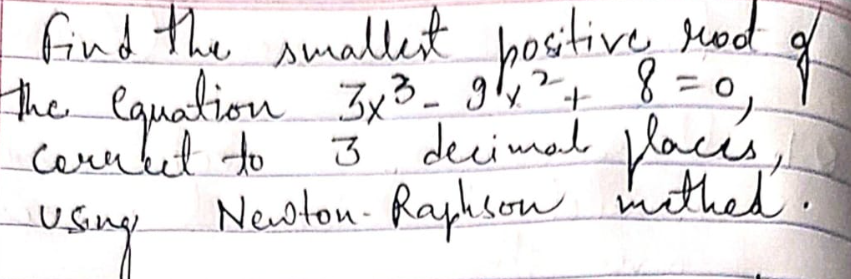 Find the smallest positive root of
the equation 3x³ - 9x² + 8 = 0,
correct to 3 decimal places,
using Newton-Raphson method.